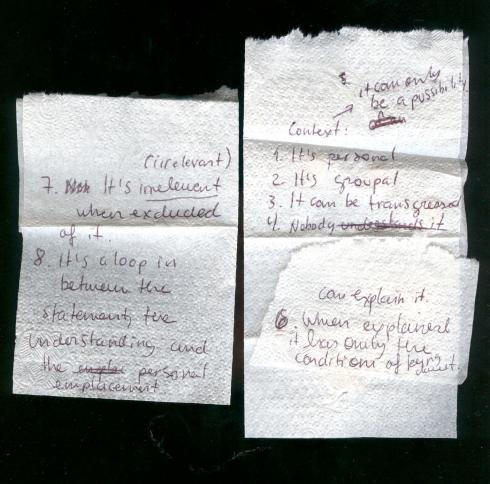 5. it can only
be a possibility
Context:
1. It's personal
2. It's groupal
3. It can be transgressed
4. Nobody understands it
can explain it.
6. When explained
it has only the
conditions of
(irrelevant)
7. Not It's irrelevent
when excluded
of it.
8. It's a loop in
between the
statement, the
understanding and
the personal
emplacement